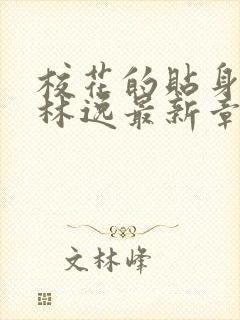 校花的貼身
林逸最新章
文林峰